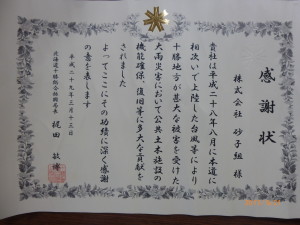 感謝状
株式会社 砂子組 様
貴社は平成二十八年八月に本道に
相次いで上陸した台風等により
十勝地方が甚大な被害を受けた
大雨災害において公共土木施設の
機能確保、復旧等に多大な貢献を
されました
よってここにその功績に深く感謝
の意を表します
平成二十九年三月十三日
北海道十勝総合振興局長 梶田 敏博